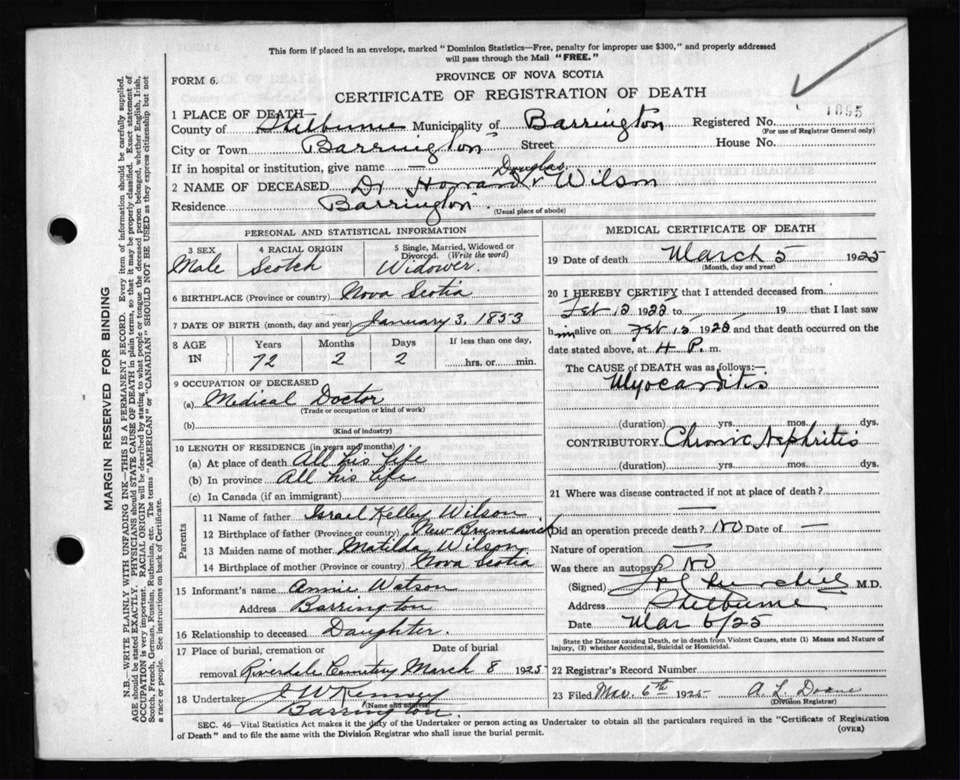 This form if placed in an envelope, marked "Dominion Statistics—Free, penalty for improper use $300," and properly addressed
will pass through the Mail "FREE."
FORM 6.
PROVINCE OF NOVA SCOTIA
CERTIFICATE OF REGISTRATION OF DEATH
1 PLACE OF DEATH—
County of Shelburne Municipality of Barrington Registered No. 1095
(For use of Registrar General only)
City or Town Barrington Street House No.
If in hospital or institution, give name —
Douglas
2 NAME OF DECEASED Dr Howard Wilson
Residence Barrington (Usual place of abode)
PERSONAL AND STATISTICAL INFORMATION
3 SEX 4 RACIAL ORIGIN 5 Single, Married, Widowed or Divorced. (Write the word)
Male Scotch Widower.
6 BIRTHPLACE (Province or country) Nova Scotia
7 DATE OF BIRTH (month, day and year) January 3. 1853
8 AGE IN Years Months Days If less than one day,
72 2 2 hrs. or min.
9 OCCUPATION OF DECEASED
(a) Medical Doctor
(Trade or occupation or kind of work)
(b)
(Kind of industry)
10 LENGTH OF RESIDENCE (in years and months)
(a) At place of death All his life
(b) In province All his life
(c) In Canada (if an immigrant)
Parents
11 Name of father Israel Kelley Wilson
12 Birthplace of father (Province or country) New Brunswick
13 Maiden name of mother Matilda Wilson
14 Birthplace of mother (Province or country) Nova Scotia
15 Informant's name Annie Watson
Address Barrington
16 Relationship to deceased Daughter.
17 Place of burial, cremation or Date of burial
removal Riverdale Cemetery March 8 1925
18 Undertaker J W Kenney
(Name and address)
Barrington.
MEDICAL CERTIFICATE OF DEATH
19 Date of death March 5 1925
(Month, day and year)
20 I HEREBY CERTIFY that I attended deceased from
Feb 12 1925 to , 19 that I last saw
him alive on Feb 12 1925 and that death occurred on the
date stated above, at 4 P. m.
The CAUSE OF DEATH was as follows:—
Myocarditis
(duration) yrs. mos. dys.
CONTRIBUTORY Chronic Nephritis
(duration) yrs. mos. dys.
21 Where was disease contracted if not at place of death?
—
Did an operation precede death? No Date of —
Nature of operation —
Was there an autopsy? No
(Signed) M.D.
Address Shelburne
Date Mar 6/25
State the Disease causing Death, or in death from Violent Causes, state (1) Means and Nature of
Injury, (2) whether Accidental, Suicidal or Homicidal.
22 Registrar's Record Number
23 Filed Mar. 6th 1925 A. L. Doane
(Division Registrar)
SEC. 46—Vital Statistics Act makes it the duty of the Undertaker or person acting as Undertaker to obtain all the particulars required in the "Certificate of Registration
of Death" and to file the same with the Division Registrar who shall issue the burial permit.
(OVER)
MARGIN RESERVED FOR BINDING
N.B.—WRITE PLAINLY WITH UNFADING INK—THIS IS A PERMANENT RECORD. Every item of information should be carefully supplied.
AGE should be stated EXACTLY. PHYSICIANS should STATE CAUSE OF DEATH in plain terms, so that it may be properly classified. Exact statement of
OCCUPATION is very important. RACIAL ORIGIN will be described by stating to what people or tongue the deceased person belonged, whether English, Irish,
Scotch, French, German, Russian, Ruthenian, etc. The terms "AMERICAN" or "CANADIAN" SHOULD NOT BE USED as they express citizenship but not
a race or people. See instructions on back of Certificate.